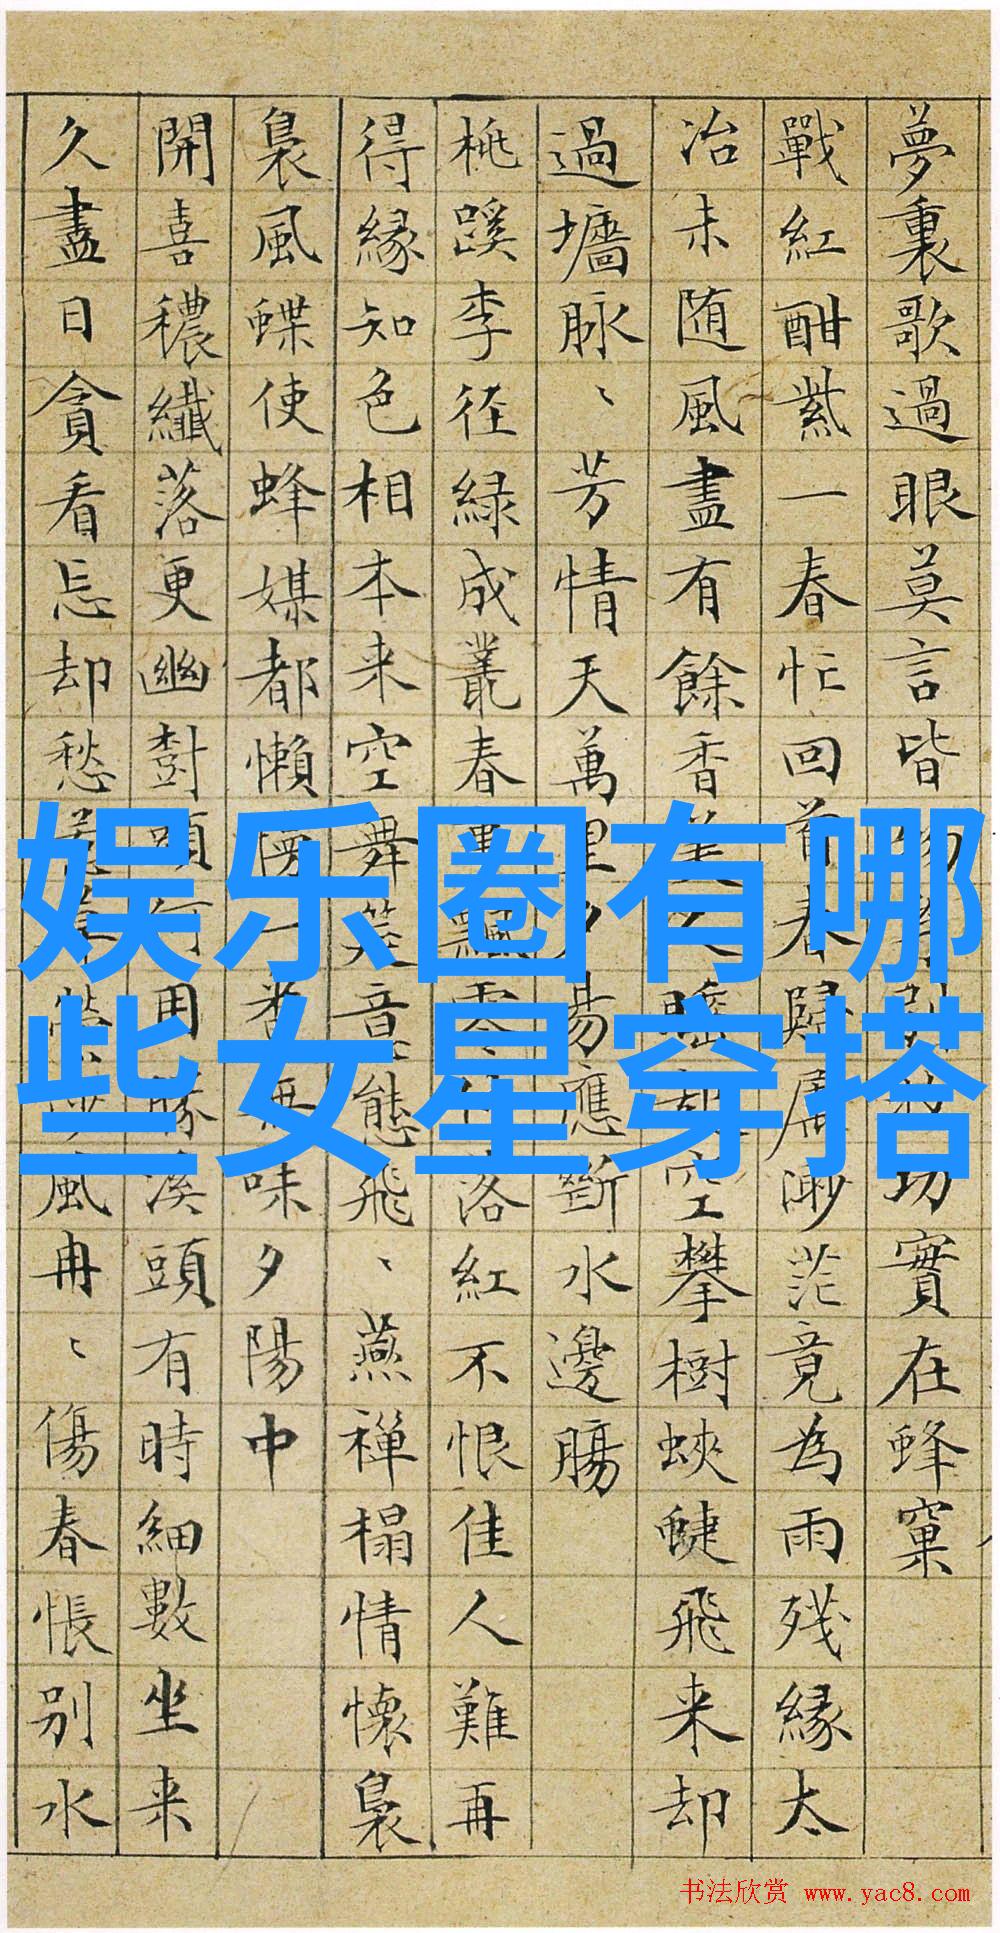 夢裏歌過眼莫言皆功實在蜂窠
戰紅酣紫一春忙回首春歸屬渺茫竟為雨殘緣太
冶未随風盡有餘香美人睡起空攀樹蛺蝶飛来却
過墻脉、芳情天萬里夕陽應斷水邊腸
桃蹊李徑綠成叢春飄零付落紅不恨佳人難再
得緣知色相本来空舞筵意態飛、燕禪榻情懷裊
裊風蝶使蜂媒都懶慢一番無味夕陽中
開喜穠纖落更幽樹頭何用勝溪頭有時細數坐来
久盡日貪看忘却愁風冉、傷春悵别水
娱乐圈有哪
些女星穿搭
书法欣赏 www.yac8.com